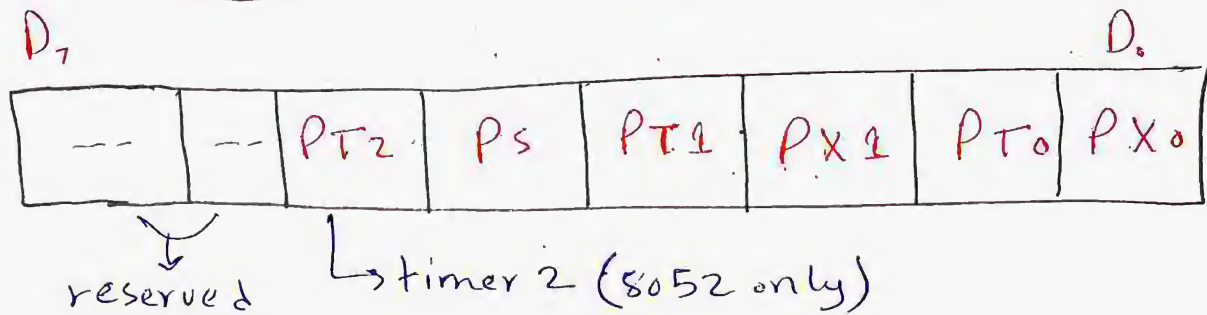 D7 D0
-- -- PT2 PS PT1 PX1 PT0 PX0
reserved timer 2 (8052 only)